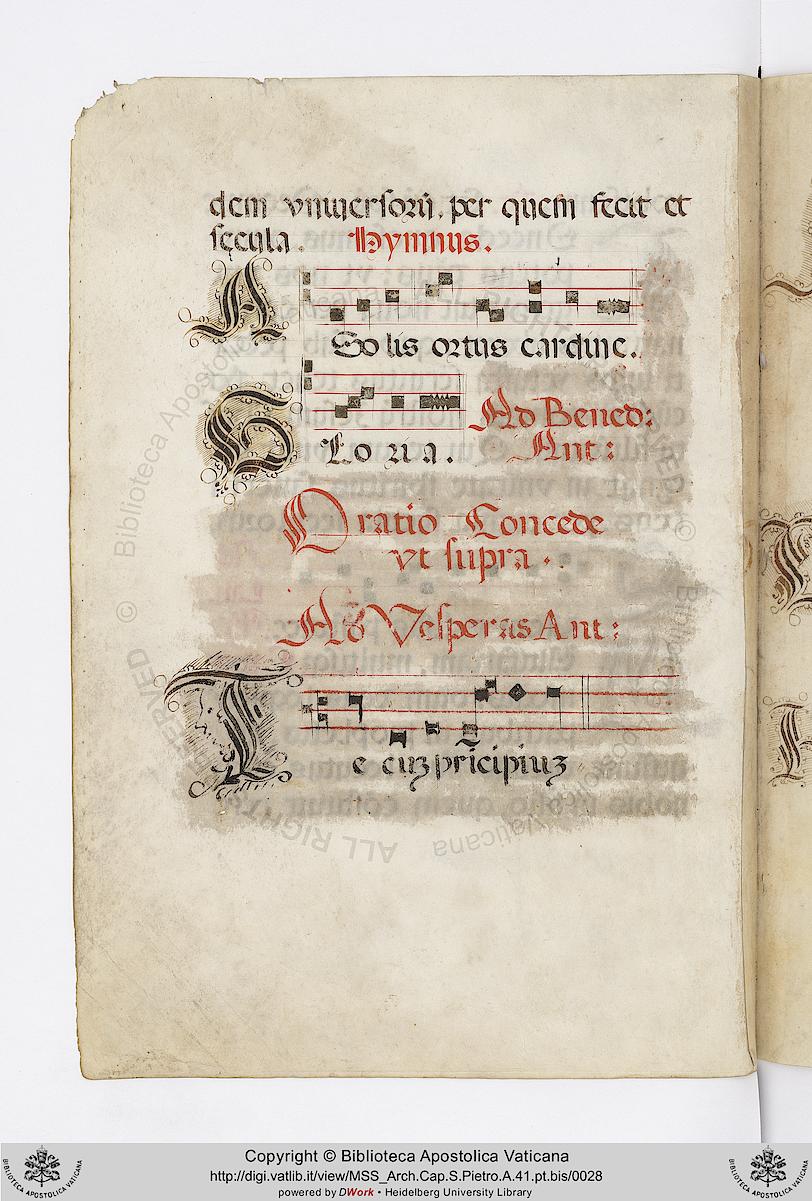 dem vniuersorũ. per quem fecit et
sęcula. Hymnus.
A
Solis ortus cardine.
G
Loria.
Ad Bened:
Ant:
Oratio Concede
vt supra.
Ad Vesperas Ant:
T
e cuz prĩcipiuz
© Biblioteca Apostolica Vaticana
ALL RIGHTS RESERVED
Copyright © Biblioteca Apostolica Vaticana
http://digi.vatlib.it/view/MSS_Arch.Cap.S.Pietro.A.41.pt.bis/0028
powered by DWork • Heidelberg University Library